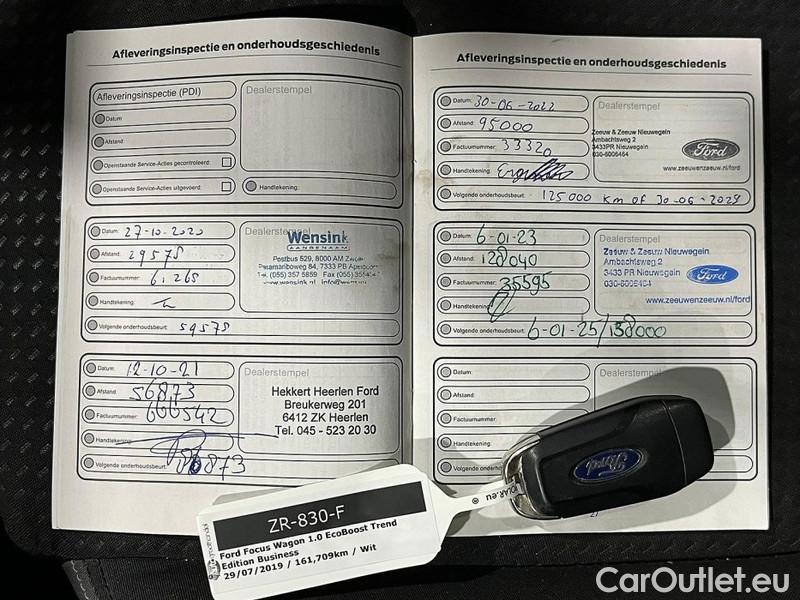 Afleveringsinspectie en onderhoudsgeschiedenis
Afleveringsinspectie (PDI)
Dealerstempel
Datum
Afstand
Openstaande Service-Acties gecontroleerd:
Openstaande Service-Acties uitgevoerd:
Handtekening:
Datum: 27-10-2020
Dealerstempel
Afstand: 29578
Factuurnummer: 61265
Handtekening:
Volgende onderhoudsbeurt: 59578
Wensink
AANGENAAM
Postbus 529, 8000 AM
Paramariboweg 84, 7333 PB Apeldoorn
Tel. (055) 357 5859
www.wensink.nl
Datum: 12-10-21
Dealerstempel
Afstand 56873
Factuurnummer:
Handtekening:
Volgende onderhoudsbeurt:
Hekkert Heerlen Ford
Breukerweg 201
6412 ZK Heerlen
Tel. 045 - 523 20 30
Afleveringsinspectie en onderhoudsgeschiedenis
Datum: 30-06-2022
Dealerstempel
Afstand: 95000
Factuurnummer: 33320
Handtekening:
Volgende onderhoudsbeurt: 125000 km of 30-06-2024
Zeeuw & Zeeuw Nieuwegein
Ambachtsweg 2
3433PR Nieuwegein
030-6006464
Ford
www.zeeuwenzeeuw.nl/ford
Datum: 6-01-23
Dealerstempel
Afstand: 128040
Factuurnummer: 35595
Handtekening:
Volgende onderhoudsbeurt: 6-01-25/158000
Zeeuw & Zeeuw Nieuwegein
Ambachtsweg 2
3433 PR Nieuwegein
030-6006464
Ford
www.zeeuwenzeeuw.nl/ford
Datum:
Dealerstempel
Afstand:
Factuurnummer:
Handtekening:
Volgende onderhoudsbeurt:
Ford
ZR-830-F
Ford Focus Wagon 1.0 EcoBoost Trend
Edition Business
29/07/2019 / 161,709km / Wit
CarOutlet.eu